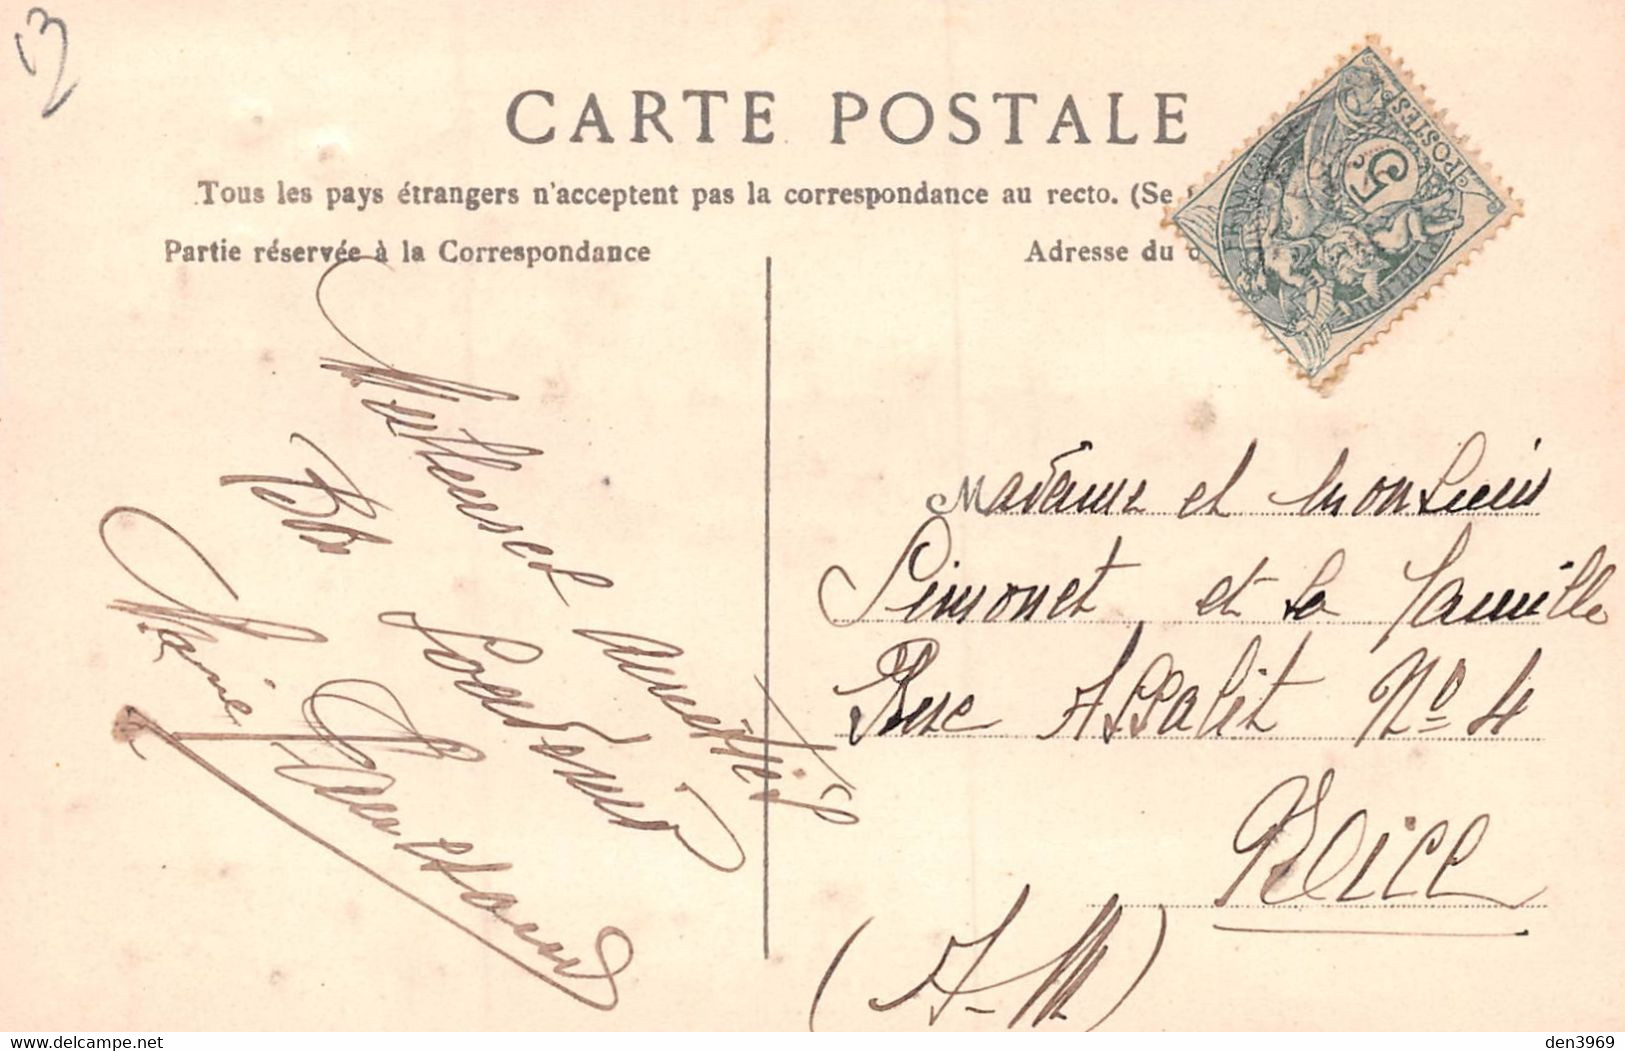 13
CARTE POSTALE
Tous les pays étrangers n'acceptent pas la correspondance au recto. (Se
Partie réservée à la Correspondance
Adresse du
RÉPUBLIQUE FRANÇAISE
POSTES
5c
Meilleures amitiés
Bx
Marie
Madame et Monsieur
Simonet et la famille
Rue Assalit No 4
Nice
(A-M)
den3969